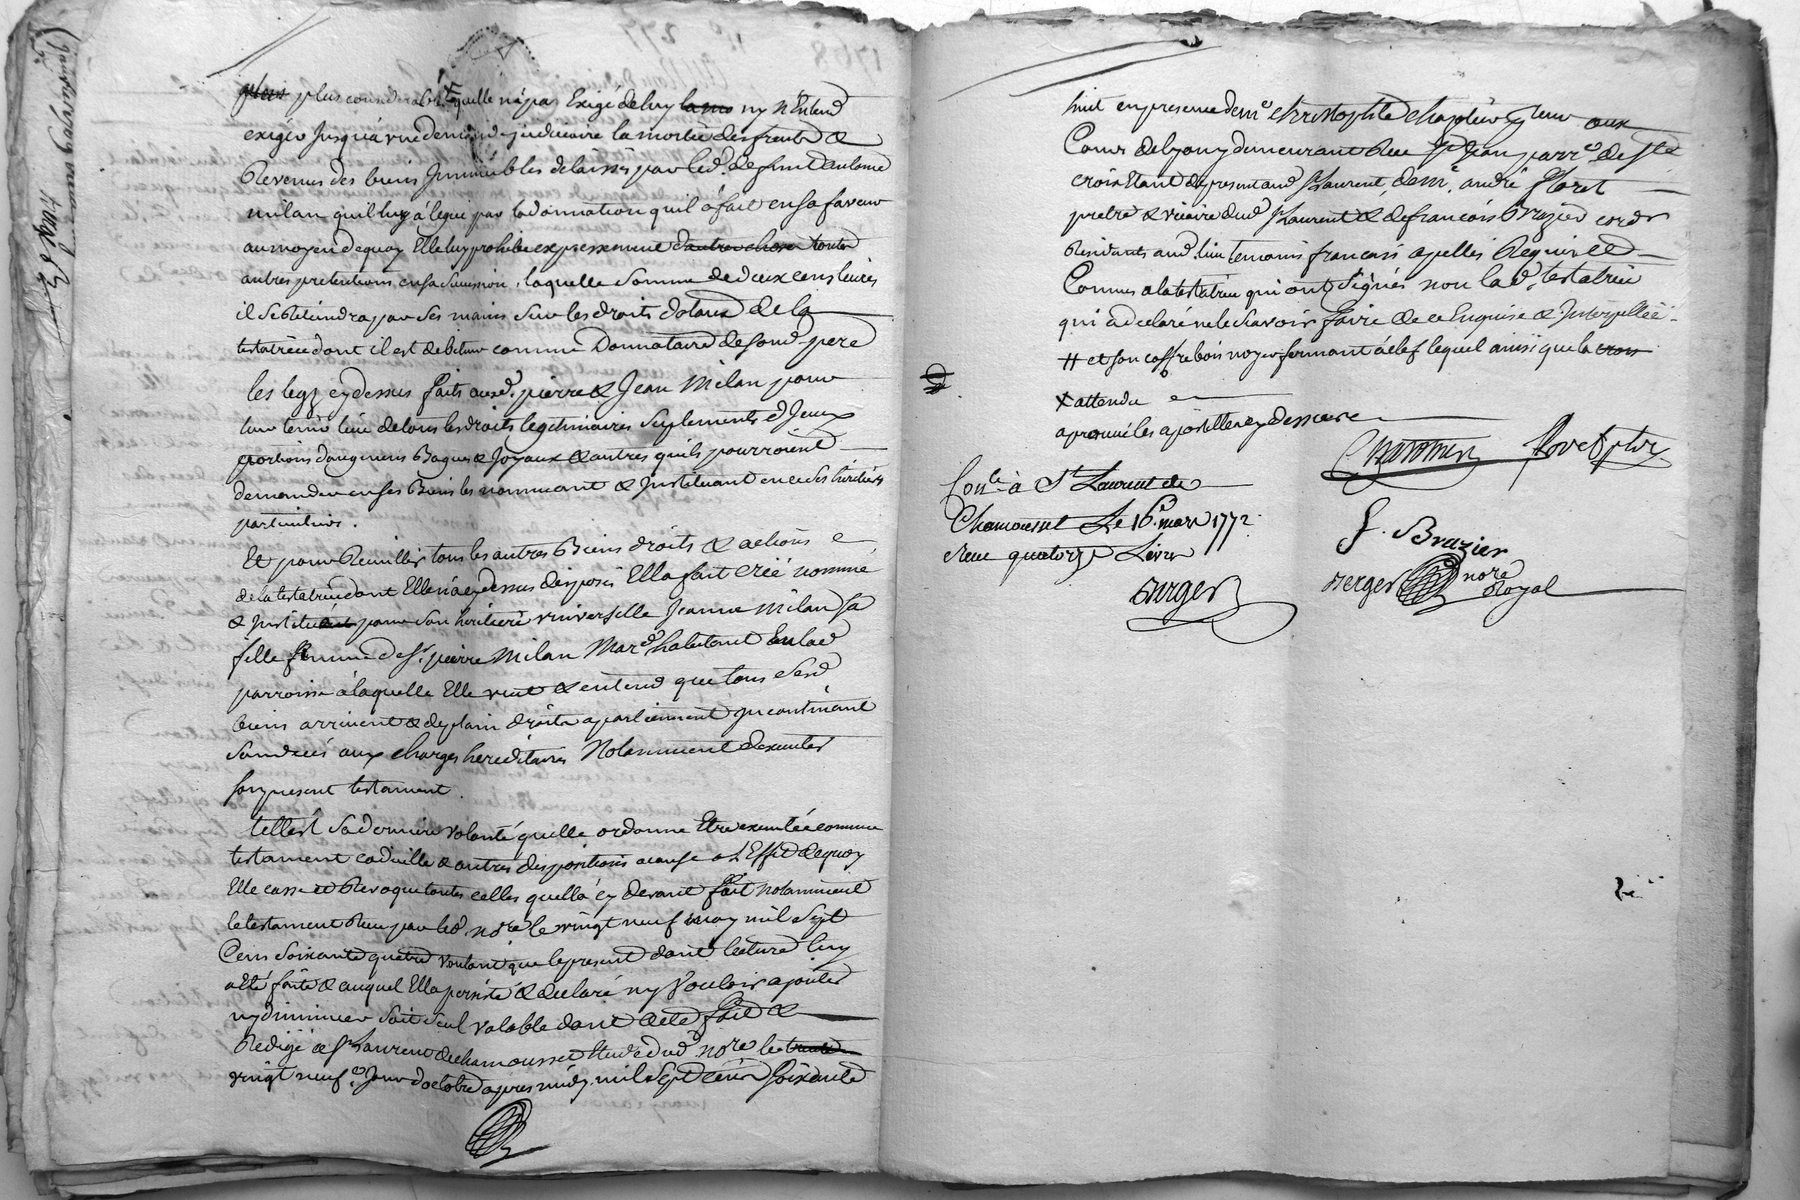 plus considerable qu'elle n'a pas Exigé de luy ny n'Entend
exiger Jusqu'a une demande judiciaire la moitié des fruits &
Revenus des biens Immeubles delaissés par led. defunt antoine
milan qu'il luy à legué par la donnation qu'il à fait en sa faveur
au moyen de quoy Elle luy prohibe expressement d'autre chose toutes
autres pretentions en sa succession, laquelle somme de deux cens livres
il se retiendra par ses mains sur les droits dotaux de la
testatrice dont il est debiteur comme Donnataire de son d. pere
les legs cy dessus faits auxd. pierre & Jean Milan pour
leur tenir lieu de tous les droits legitimaires suplements d'Iceux
portions d'augment Bagues & Joyaux & autres qu'ils pourroient
demander en ses Biens les nommant & Instituant en ce ses heritiers
particuliers.
Et pour Recueillir tous les autres Biens droits & actions
de la testatrice dont Elle n'a cy dessus disposé Elle a fait créé nommé
& Institué pour son heritiere universelle Jeanne Milan sa
fille femme de Sr. pierre Milan Mard. habitant en lad.
parroisse à laquelle Elle veut & entend que tous sesd.
biens arrivent & de plain droit apartiennent Incontinant
son decés aux charges hereditaires Notamment d'executer
son present testament.
telle est sa derniere volonté qu'elle ordonne Etre executée comme
testament codicille & autres dispositions a cause a l'Effet de quoy
Elle casse et Revoque toutes celles quella cy devant fait notamment
le testament Recu par led. nore le vingt neuf may mil sept
Cens soixante quatre voulant que le present dont lecture luy
a Eté faite & auquel Elle a persisté & declaré n'y vouloir ajouter
ny diminuer soit seul valable dont acte fait &
Redigé a St Laurent de chamousset Etude dud. nore le trente
vingt neufe. Jour d'octobre apres midy mil sept cens soixante
huit en presence de me christophle chapotier en aux
Cours de lyon y demeurant Rue St Jean parre. de Ste
croix Etant de present aud. St Laurent, de mr. andré floret
pretre & vicaire dud. St Laurent & de francois Brazier cordr
Residants aud. lieu temoins francais apellés Requis Et
Connus a la testatrice qui ont Signés non lad. testatrice
qui a declaré ne le sçavoir faire de ce Enquise & Interpellée
# et son coffre bois noyer fermant à clef lequel ainsi que la
X attendu
aprouvé les apostilles cy dessus
floret ptre
Conle. à St Laurent de
Chamousset Le 16e. mars 1772
Recu quatorze Livres
Berger
f. Brazier
Berger nore
Royal